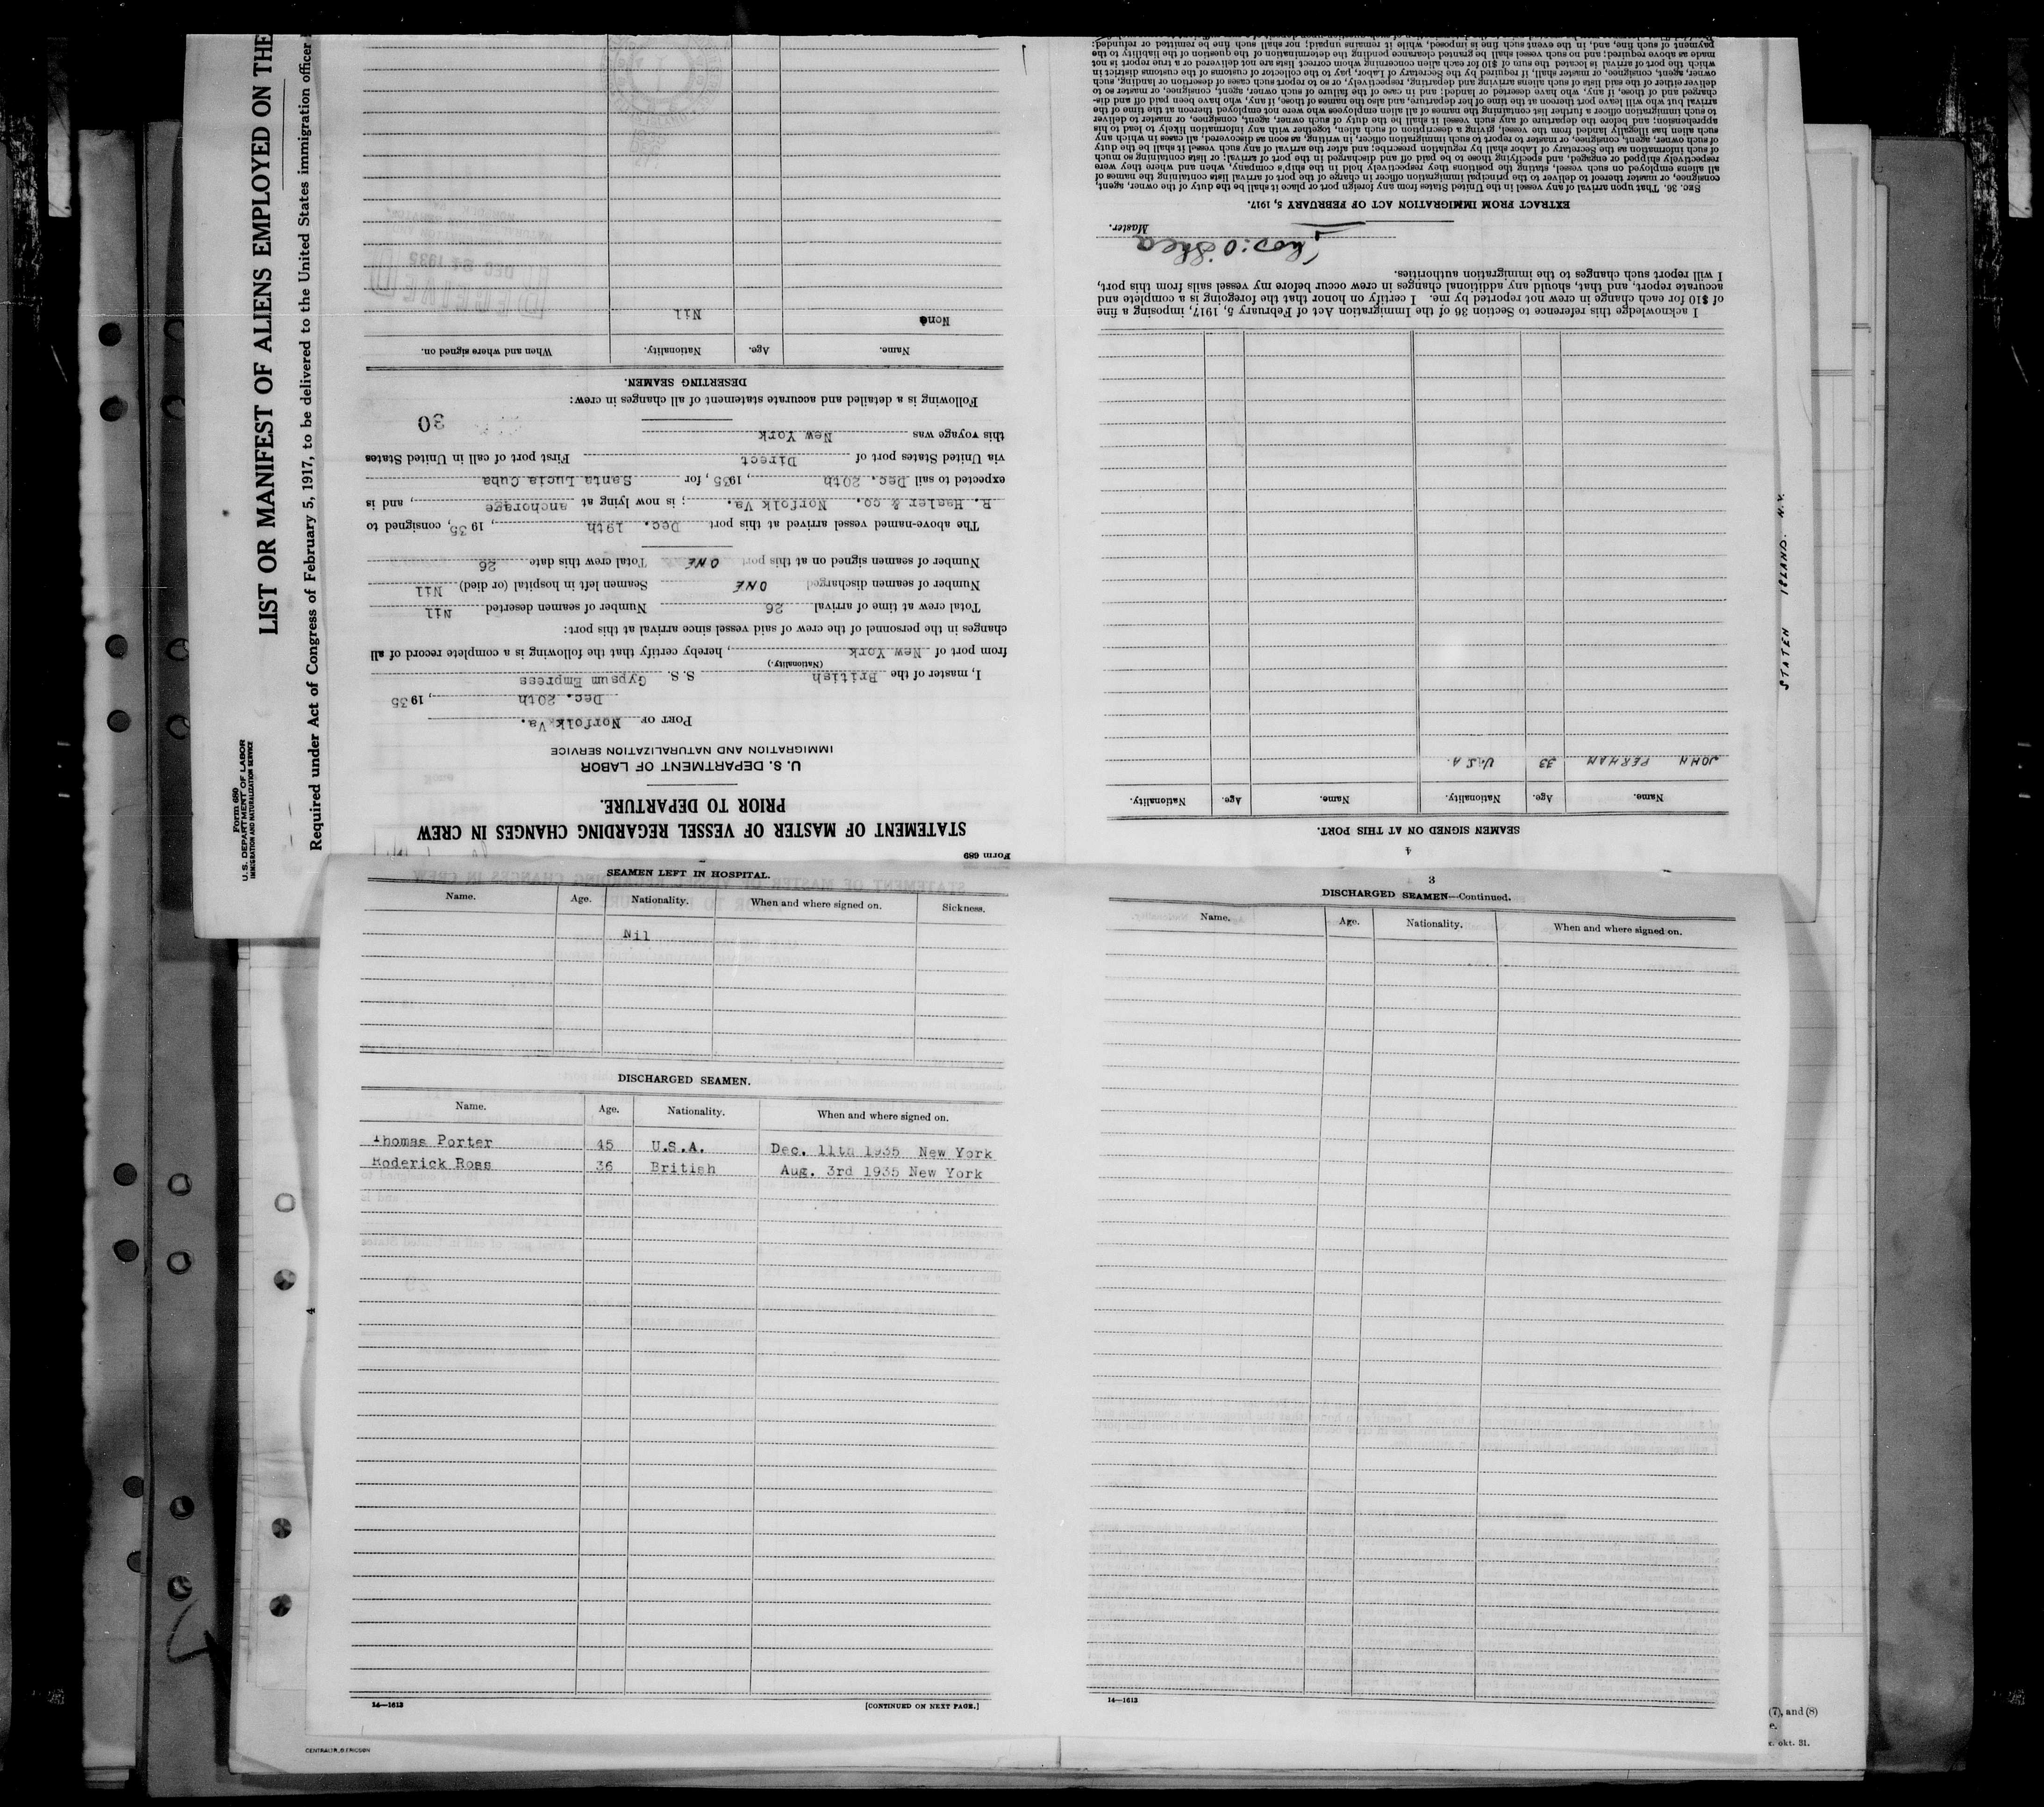 LIST OR MANIFEST OF ALIENS EMPLOYED ON THE
Required under Act of Congress of February 5, 1917, to be delivered to the United States immigration officer
Form 680
U. S. DEPARTMENT OF LABOR
IMMIGRATION AND NATURALIZATION SERVICE
Form 689
STATEMENT OF MASTER OF VESSEL REGARDING CHANGES IN CREW
PRIOR TO DEPARTURE.
U. S. DEPARTMENT OF LABOR
IMMIGRATION AND NATURALIZATION SERVICE
PORT OF Norfolk Va.
Dec. 20th, 1935
I, master of the British S. S. Gypsum Empress
(Nationality.)
from port of New York, hereby certify that the following is a complete record of all
changes in the personnel of the crew of said vessel since arrival at this port:
Total crew at time of arrival 26 Number of seamen deserted Nil
Number of seamen discharged ONE Seamen left in hospital (or died) Nil
Number of seamen signed on at this port ONE Total crew this date 26
The above-named vessel arrived at this port Dec. 19th, 1935, consigned to
R. Hasler & co. Norfolk Va.; is now lying at anchorage, and is
expected to sail Dec. 20th, 1935, for Santa Lucia Cuba
via United States port of Direct First port of call in United States
this voyage was New York
30
Following is a detailed and accurate statement of all changes in crew:
DESERTING SEAMEN.
Name. Age. Nationality. When and where signed on.
None Nil
RECEIVED
DEC 24 1935
4
SEAMEN SIGNED ON AT THIS PORT.
Name. Age. Nationality. Name. Age. Nationality.
JOHN PERHAM 33 U.S.A.
STATEN ISLAND. N.Y.
I acknowledge this reference to Section 36 of the Immigration Act of February 5, 1917, imposing a fine
of $10 for each change in crew not reported by me. I certify on honor that the foregoing is a complete and
accurate report, and that, should any additional changes in crew occur before my vessel sails from this port,
I will report such changes to the immigration authorities.
Thos: O'Shea
Master.
EXTRACT FROM IMMIGRATION ACT OF FEBRUARY 5, 1917.
SEC. 36. That upon arrival of any vessel in the United States from any foreign port or place it shall be the duty of the owner, agent,
consignee, or master thereof to deliver to the principal immigration officer in charge of the port of arrival lists containing the names of
all aliens employed on such vessel, stating the positions they respectively hold in the ship's company, when and where they were
respectively shipped or engaged, and specifying those to be paid off and discharged in the port of arrival; or lists containing so much
of such information as the Secretary of Labor shall by regulation prescribe; and after the arrival of any such vessel it shall be the duty
of such owner, agent, consignee, or master to report to such immigration officer, in writing, as soon as discovered, all cases in which any
such alien has illegally landed from the vessel, giving a description of such alien, together with any information likely to lead to his
apprehension; and before the departure of any such vessel it shall be the duty of such owner, agent, consignee, or master to deliver
to such immigration officer a further list containing the names of all alien employees who were not employed thereon at the time of the
arrival but who will leave port thereon at the time of her departure, and also the names of those, if any, who have been paid off and dis-
charged and of those, if any, who have deserted or landed; and in case of the failure of such owner, agent, consignee, or master so to
deliver either of the said lists of such aliens arriving and departing, respectively, or so to report such cases of desertion or landing, such
owner, agent, consignee, or master, shall, if required by the Secretary of Labor, pay to the collector of customs of the customs district in
which the port of arrival is located the sum of $10 for each alien concerning whom correct lists are not delivered or a true report is not
made as above required; and no such vessel shall be granted clearance pending the determination of the question of the liability to the
payment of such fine, and, in the event such fine is imposed, while it remains unpaid; nor shall such fine be remitted or refunded:
SEAMEN LEFT IN HOSPITAL.
Name. Age. Nationality. When and where signed on. Sickness.
Nil
DISCHARGED SEAMEN.
Name. Age. Nationality. When and where signed on.
Thomas Porter 45 U.S.A. Dec. 11th 1935 New York
Roderick Ross 36 British Aug. 3rd 1935 New York
14—1613
[CONTINUED ON NEXT PAGE.]
3
DISCHARGED SEAMEN—Continued.
Name. Age. Nationality. When and where signed on.
14—1613
4
(7), and (8)
e.
okt. 31.